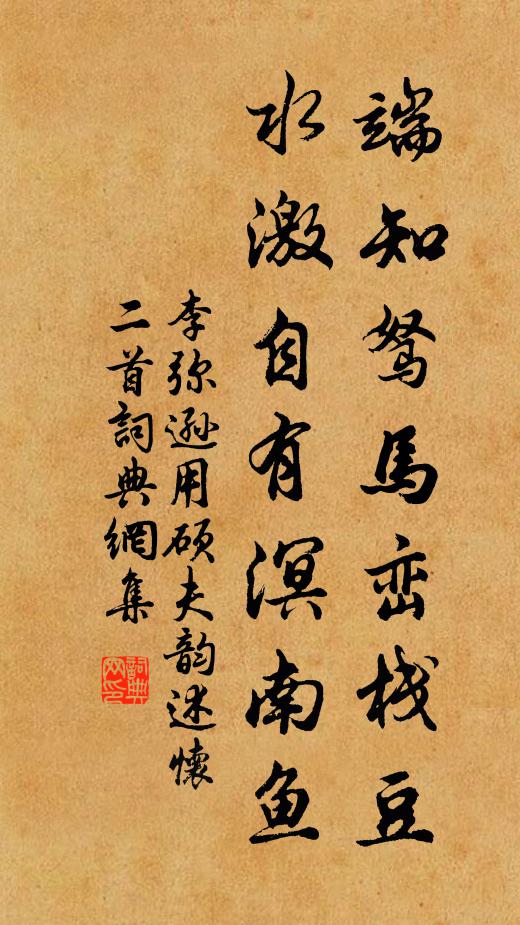 端知驽馬峦栈豆
水激自有溟南鱼
李弥遜用硕夫韵述懷
二首詞典網集
詞典
网印